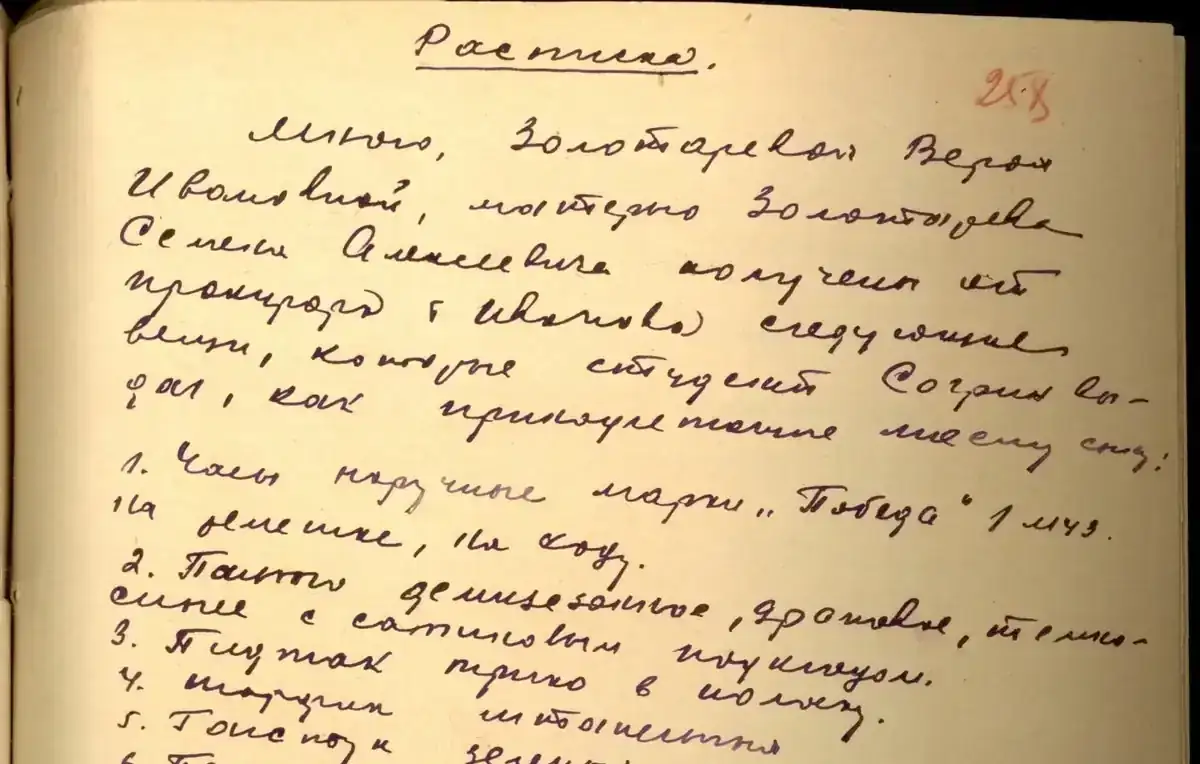 Расписка.
Мною, Золотаревой Верой
Ивановной, матерью Золотарева
Семена Алексеевича получены от
прокурора Иванова следующие
вещи, которые студент Согрин вы-
дал, как принадлежащие моему сыну:
1. Часы наручные марки „Победа“ 1 МЧЗ.
на ремешке, на ходу.
2. Пальто демисезонное, драповое, темно-
синее с сатиновым подкладом.
3. Пиджак трико в полоску.
4. шарфик штапельный
5. Галстук